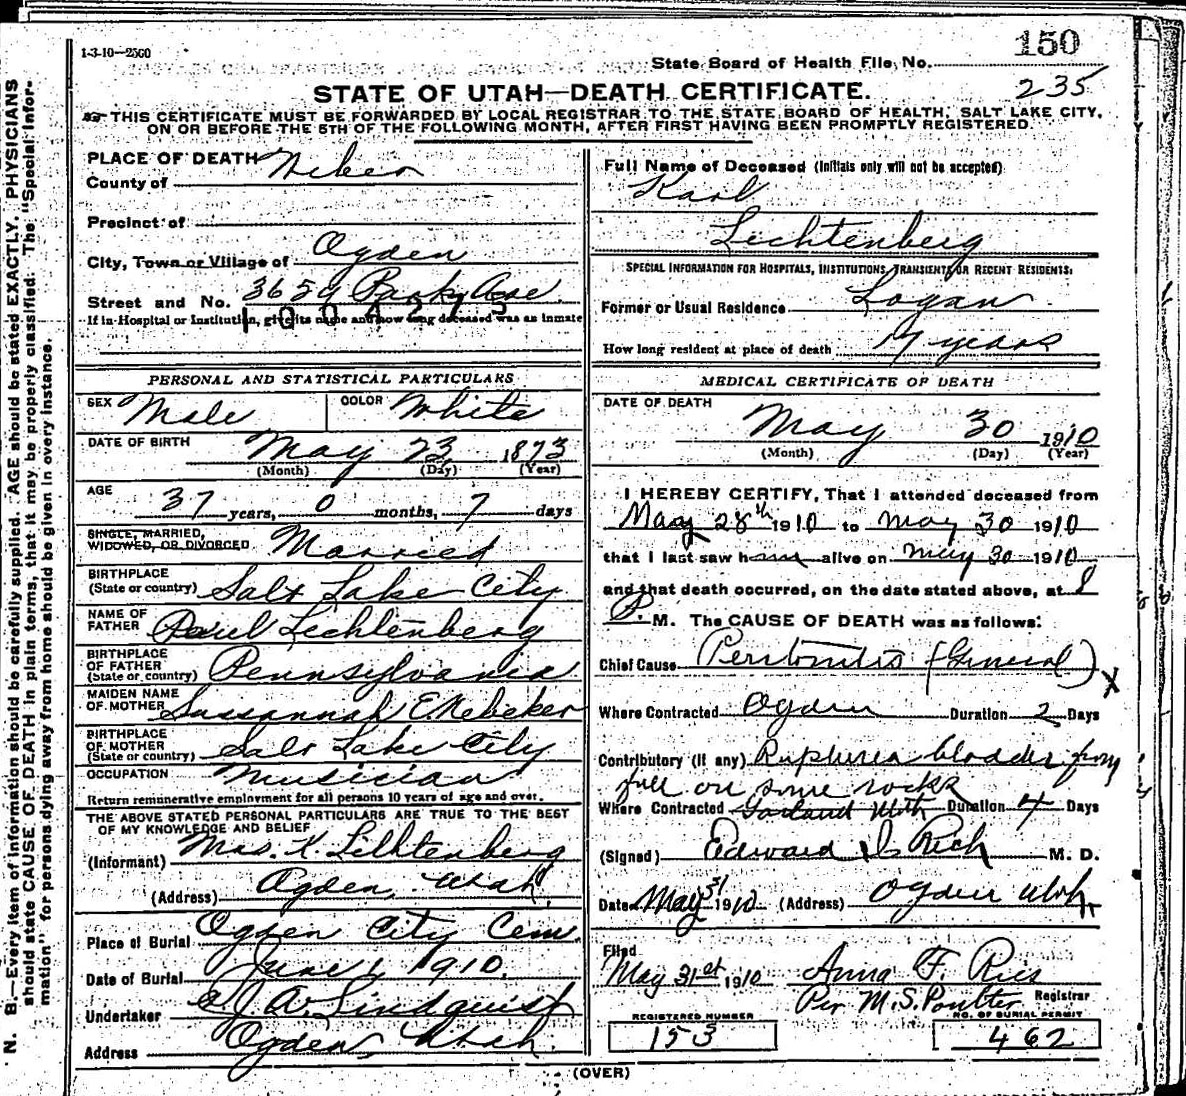 1-3-10—2500
150
State Board of Health File No.
235
STATE OF UTAH—DEATH CERTIFICATE.
THIS CERTIFICATE MUST BE FORWARDED BY LOCAL REGISTRAR TO THE STATE BOARD OF HEALTH, SALT LAKE CITY,
ON OR BEFORE THE 5TH OF THE FOLLOWING MONTH, AFTER FIRST HAVING BEEN PROMPTLY REGISTERED.
N. B.—Every item of information should be carefully supplied. AGE should be stated EXACTLY. PHYSICIANS
should state CAUSE OF DEATH in plain terms, that it may be properly classified. The "Special Infor-
mation" for persons dying away from home should be given in every instance.
PLACE OF DEATH
County of Weber
Precinct of
City, Town or Village of Ogden
Street and No. 3659 Park Ave.
If in Hospital or Institution, give its name and how long deceased was as inmate
1004275
PERSONAL AND STATISTICAL PARTICULARS
SEX Male COLOR White
DATE OF BIRTH May 23 1873
(Month) (Day) (Year)
AGE
37 years, 0 months, 7 days
SINGLE, MARRIED,
WIDOWED, OR DIVORCED Married
BIRTHPLACE
(State or country) Salt Lake City
NAME OF
FATHER Paul Lechtenberg
BIRTHPLACE
OF FATHER
(State or country) Pennsylvania
MAIDEN NAME
OF MOTHER Sussannah E. Rebeker
BIRTHPLACE
OF MOTHER
(State or country) Salt Lake City
OCCUPATION Musician
Return remunerative employment for all persons 10 years of age and over.
THE ABOVE STATED PERSONAL PARTICULARS ARE TRUE TO THE BEST
OF MY KNOWLEDGE AND BELIEF
(Informant) Mrs. K. Lechtenberg
(Address) Ogden, Utah
Place of Burial Ogden City Cem.
Date of Burial June 1, 1910.
Undertaker J. A. Lindquist
Address Ogden, Utah.
Full Name of Deceased (Initials only will not be accepted)
Karl
Lechtenberg
SPECIAL INFORMATION FOR HOSPITALS, INSTITUTIONS, TRANSIENTS, OR RECENT RESIDENTS.
Former or Usual Residence Logan
How long resident at place of death years
MEDICAL CERTIFICATE OF DEATH
DATE OF DEATH
May 30 1910
(Month) (Day) (Year)
I HEREBY CERTIFY, That I attended deceased from
May 28th 1910 to May 30 1910
that I last saw him alive on May 30 1910
and that death occurred, on the date stated above, at 8
P. M. The CAUSE OF DEATH was as follows:
Chief Cause Peritonitis (General)
X
Where Contracted Ogden Duration 2 Days
Contributory (if any) Ruptured bladder from
fall on some rocks
Where Contracted Garland Utah Duration 4 Days
(Signed) Edward I. Rich M. D.
Date May 31 1910 (Address) Ogden Utah
Filed
May 31st 1910 Anna F. Ries
Per M. S. Poulter Registrar
REGISTERED NUMBER
153
NO. OF BURIAL PERMIT
462
(OVER)